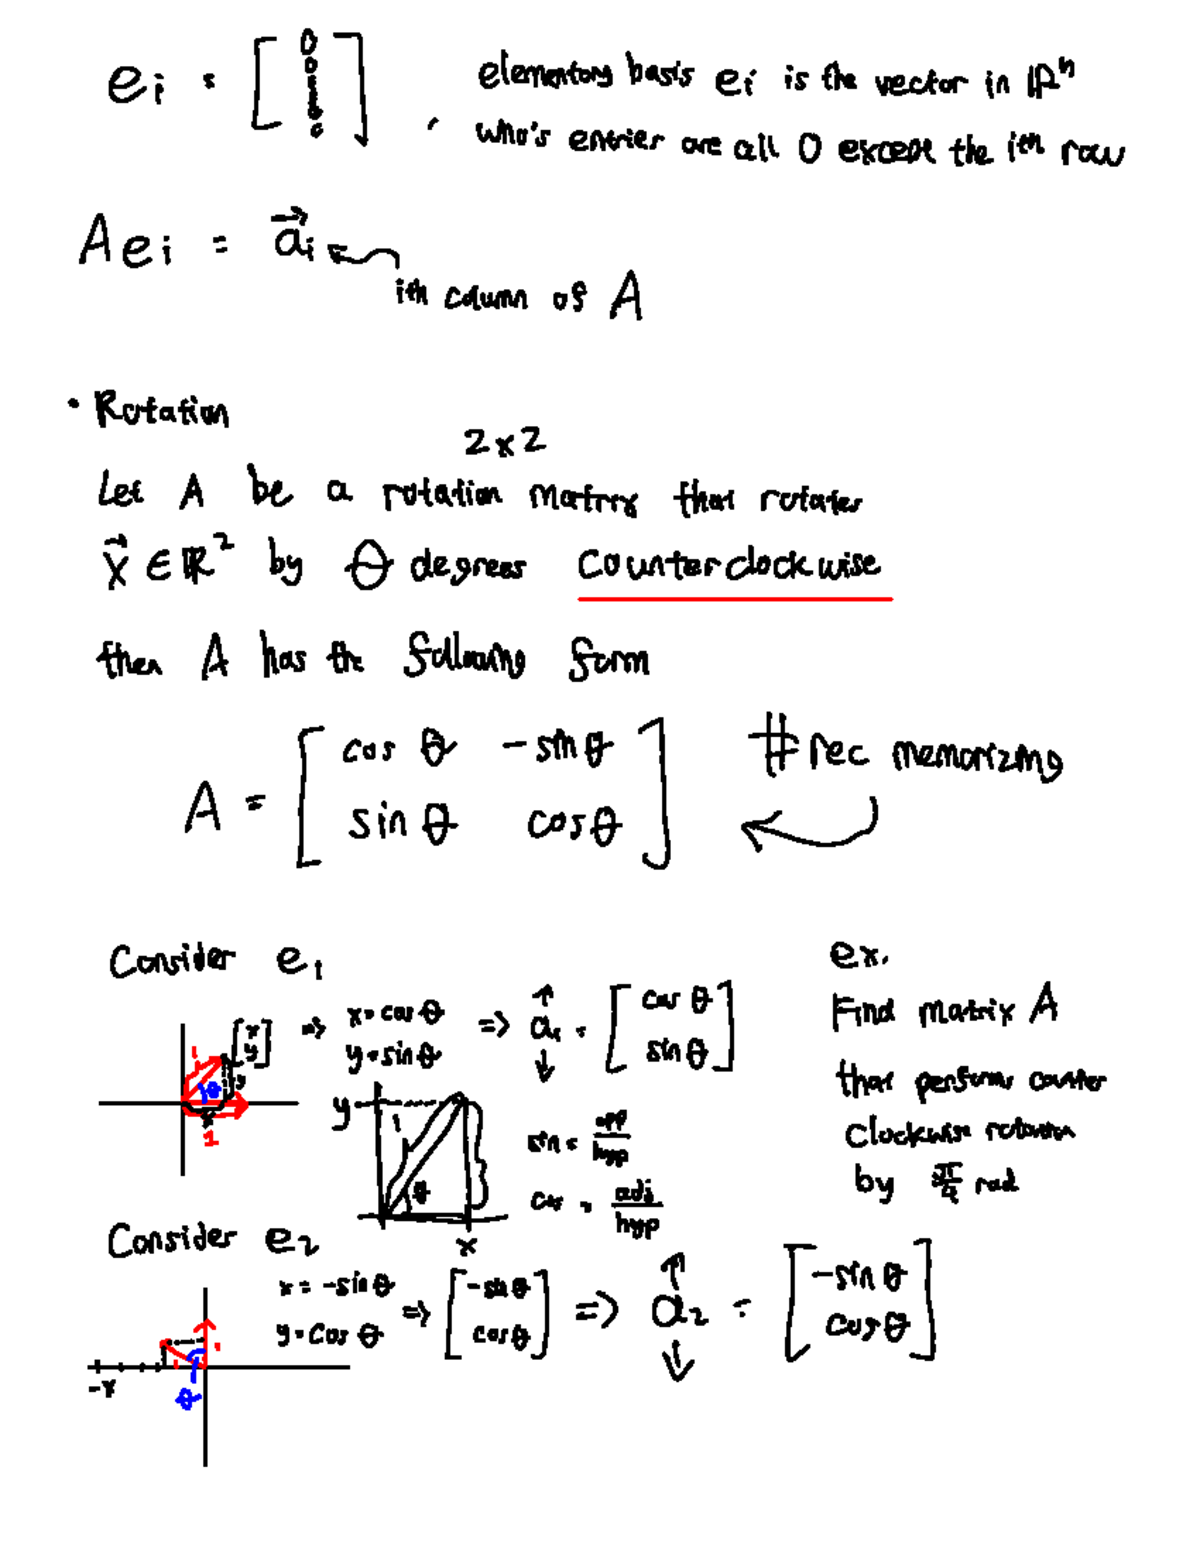 eᵢ = [0 0 0] , elementary basis eᵢ is the vector in ℝⁿ
who's entries are all 0 except the iᵗʰ row
A eᵢ = a⃗ᵢ
ith column of A
• Rotation
2x2
Let A be a rotation matrix that rotates
x⃗ ∈ ℝ² by θ degrees counterclockwise
then A has the following form
A = [cos θ -sin θ
sin θ cos θ]
# rec memorizing
Consider e₁
[x y]
1
θ
y
x
1
=> x = cos θ
y = sin θ
=> a₁ = [cos θ
sin θ]
y
1
θ
x
sin = opp/hyp
cos = adj/hyp
ex.
Find matrix A
that performs counter
clockwise rotation
by π/4 rad
Consider e₂
-x
θ
x = -sin θ
y = cos θ
=> [-sin θ
cos θ]
=> a₂ = [-sin θ
cos θ]